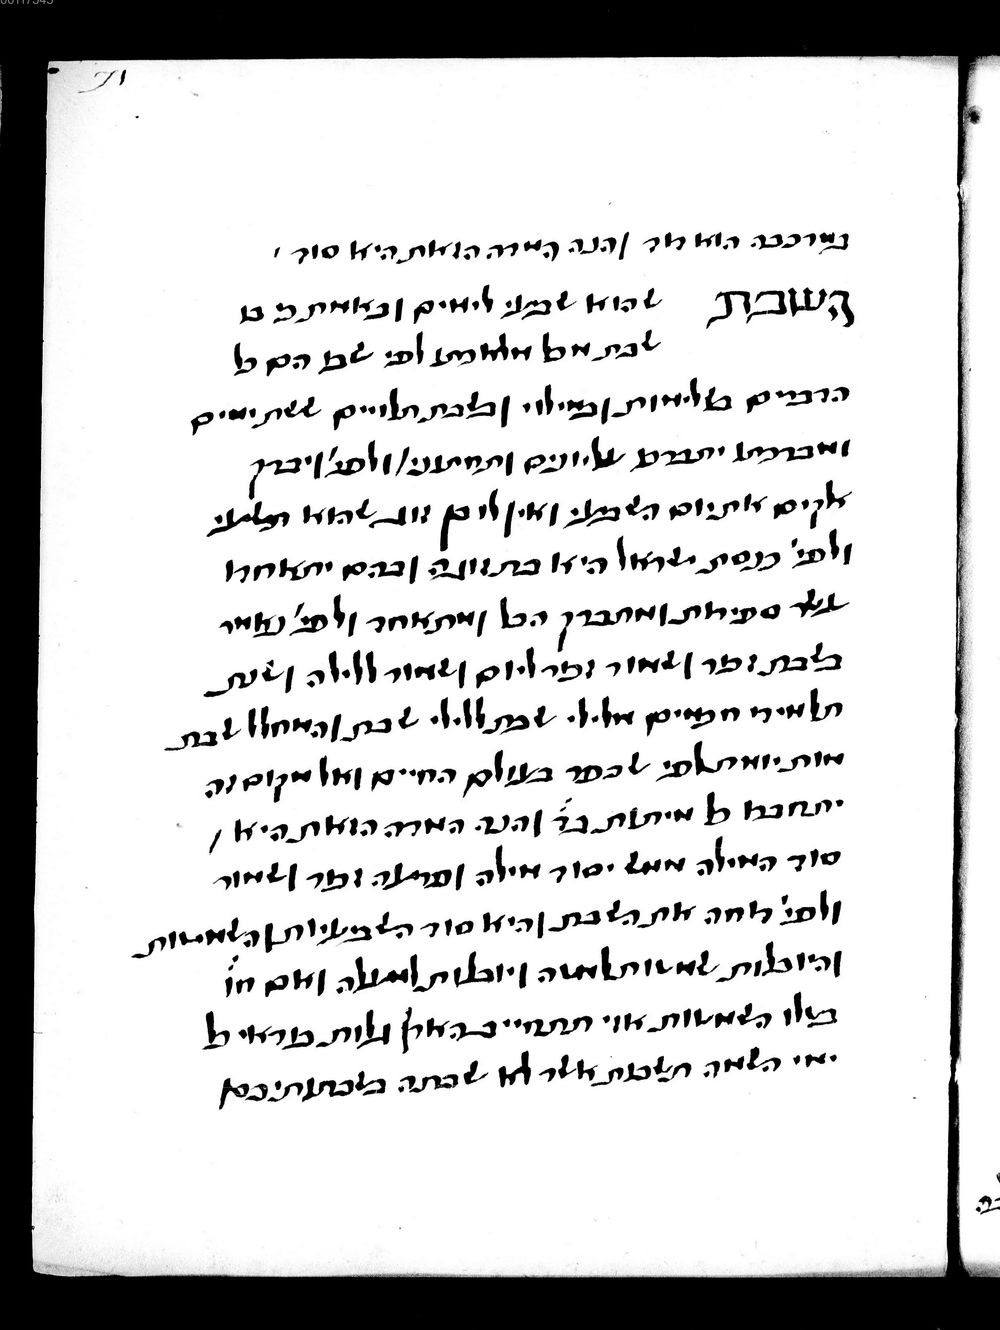 71
במרכבה הוא דוד והנה המדה הזאת היא סוד
השבת שהוא שביעי לימים ובאמת כי בו
שבת מכל מלאכתו לפי שבו הם כל
הדברים בשלימות ובמילוי ובשבת תלויים ששת ימים
ומברכתו יתברכו עליונים ותחתוני' ולפי' ויברך
אלקים את יום השביעי ואין לו בן זוג שהוא תשיעי
ולפי' כנסת ישראל היא בת זוגה ובהם יתאחדו
עשר ספירות ומתברך הכל ומתאחד ולפי' נאמר
בשבת זכור ושמור זכור ליום ושמור ללילה ועונת
תלמידי חכמים מלילי שבת ללילי שבת והמחלל שבת
מות יומת לפי שכפר בעולם החיים ואל מקום זה
יתחברו כל מיתות בד והנה המדה הזאת היא
סוד המילה ממש יסוד מילה ופריעה זכור ושמור
ולפי' דוחה את השבת והיא סוד השביעיות והשמטות
והיובלות שמטות למטה ויובלות למעלה ואם חו
בטלו השמטות אוי תתחייב הארץ גלות בוראי כל
ימי השמה תשבות אשר לא שבתה בשבתותיכם